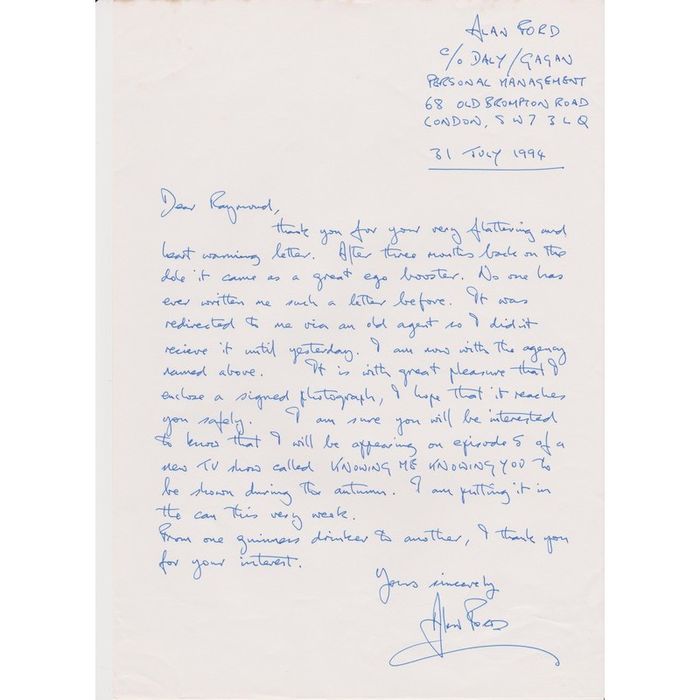 ALAN FORD
C/O DALY/GAGAN
PERSONAL MANAGEMENT
68 OLD BROMPTON ROAD
LONDON, SW7 3LQ
31 JULY 1994
Dear Raymond,
thank you for your very flattering and
heart warming letter. After three months back on the
dole it came as a great ego booster. No one has
ever written me such a letter before. It was
redirected to me via an old agent so I didn't
recieve it until yesterday. I am now with the agency
named above. It is with great pleasure that I
enclose a signed photograph, I hope that it reaches
you safely. I am sure you will be interested
to know that I will be appearing on episode 5 of a
new TV show called KNOWING ME KNOWING YOU to
be shown during the autumn. I am putting it in
the can this very week.
From one guinness drinker to another, I thank you
for your interest.
Yours sincerely
Alan Ford